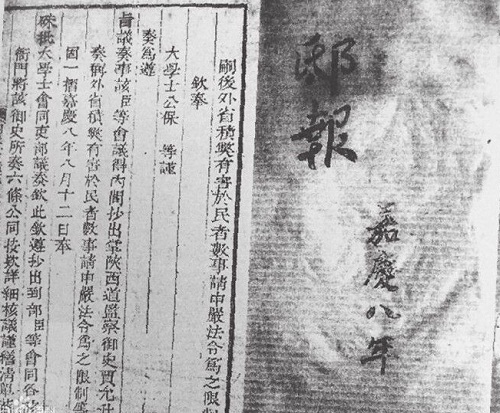 邸報
嘉慶八年
嗣後外省積獘有害於民者數事請申嚴法令爲之限制
欽奉
大學士公保 等謹
奏爲遵
旨議奏事該臣等會議得内閣抄出掌陝西道監察御史賈允升
奏稱外省積獘有害於民者數事請申嚴法令爲之限制等
因一摺嘉慶八年八月十二日奉
硃批大學士會同吏部議奏欽此欽遵抄出到部臣等會同各
衙門將該御史所奏六條公同按欵詳細核議謹繕清